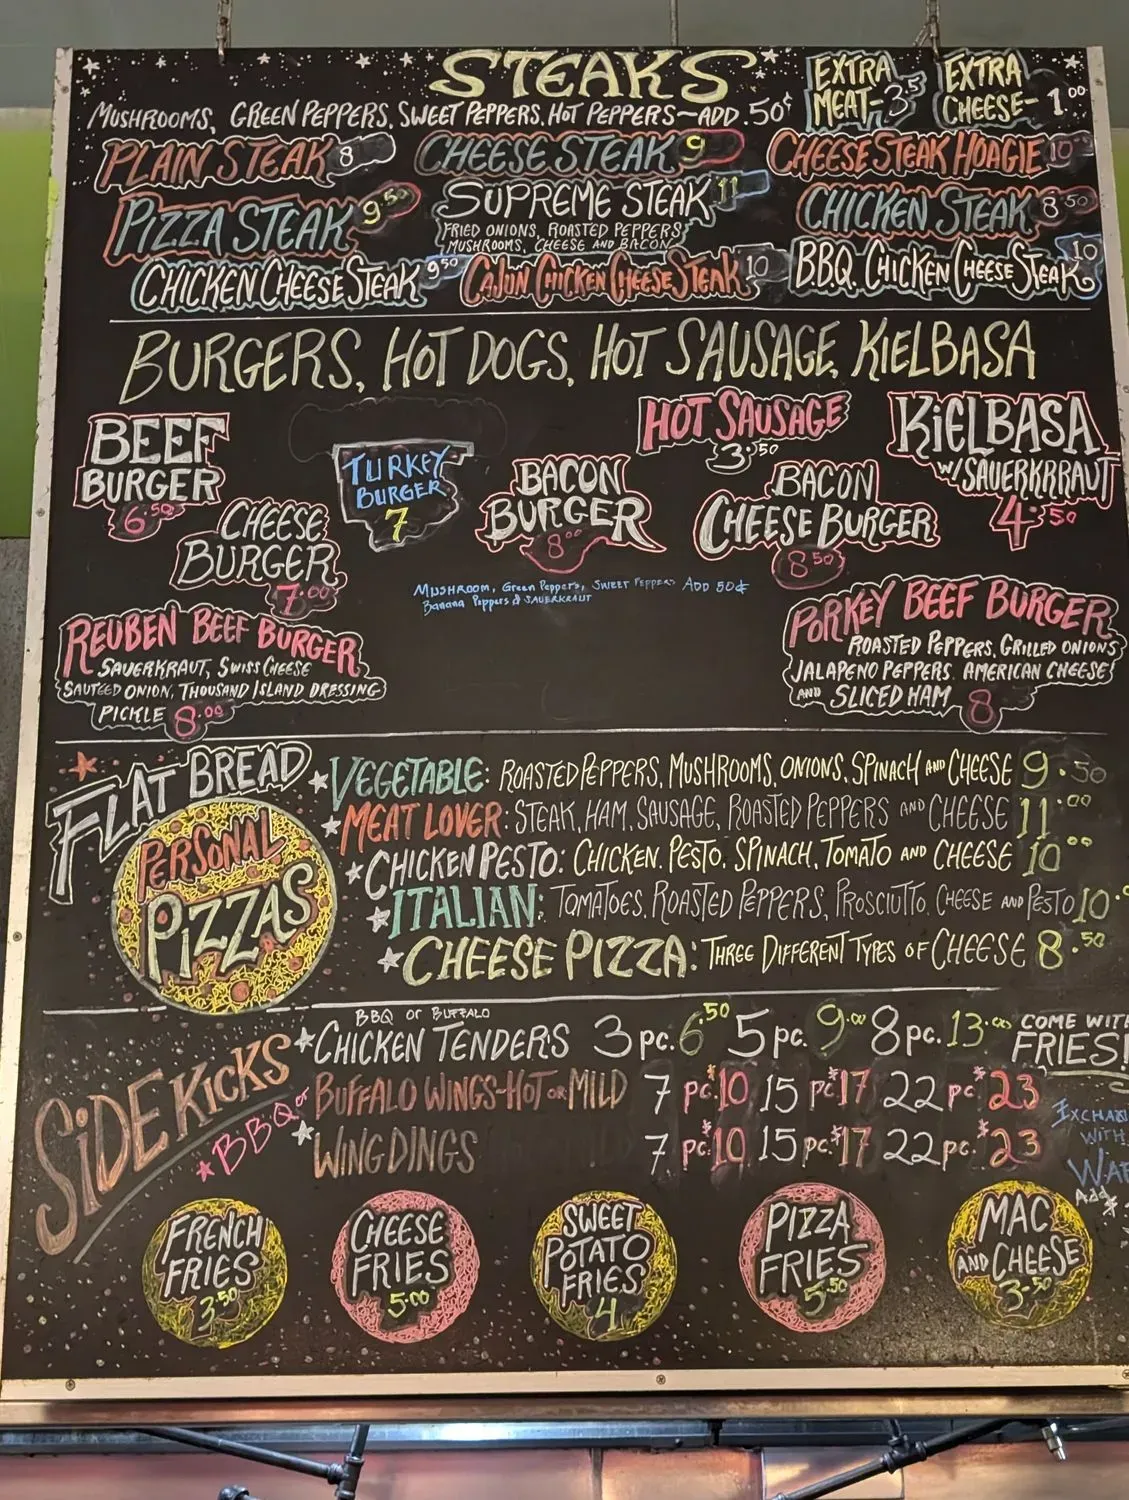 STEAKS
MUSHROOMS, GREEN PEPPERS, SWEET PEPPERS, HOT PEPPERS - ADD .50¢
EXTRA
MEAT- 3.5
EXTRA
CHEESE- 1.00
PLAIN STEAK 8
CHEESE STEAK 9
CHEESE STEAK HOAGIE 10
PIZZA STEAK 9.50
SUPREME STEAK 11
FRIED ONIONS, ROASTED PEPPERS
MUSHROOMS, CHEESE AND BACON
CHICKEN STEAK 8.50
CHICKEN CHEESE STEAK 9.50
CAJUN CHICKEN CHEESE STEAK 10
B.B.Q. CHICKEN CHEESE STEAK 10
BURGERS, HOT DOGS, HOT SAUSAGE, KIELBASA
BEEF
BURGER
6.50
TURKEY
BURGER
7
HOT SAUSAGE
3.50
KIELBASA
W/SAUERKRRAUT
4.50
CHEESE
BURGER
7.00
BACON
BURGER
8.00
BACON
CHEESE BURGER
8.50
MUSHROOM, Green Peppers, SWEET PEPPERS ADD 50¢
Banana Peppers & SAUERKRAUT
REUBEN BEEF BURGER
SAUERKRAUT, SWISS CHEESE
SAUTEED ONION, THOUSAND ISLAND DRESSING
PICKLE 8.00
PORKEY BEEF BURGER
ROASTED PEPPERS, GRILLED ONIONS
JALAPENO PEPPERS, AMERICAN CHEESE
AND SLICED HAM 8
FLAT BREAD
PERSONAL
PIZZAS
VEGETABLE: ROASTED PEPPERS, MUSHROOMS, ONIONS, SPINACH AND CHEESE 9.50
MEAT LOVER: STEAK, HAM, SAUSAGE, ROASTED PEPPERS AND CHEESE 11.00
CHICKEN PESTO: CHICKEN, PESTO, SPINACH, TOMATO AND CHEESE 10.00
ITALIAN: TOMATOES, ROASTED PEPPERS, PROSCIUTTO, CHEESE AND PESTO 10
CHEESE PIZZA: THREE DIFFERENT TYPES OF CHEESE 8.50
SIDE KICKS
BBQ OR BUFFALO
CHICKEN TENDERS 3 pc. 6.50 5 pc. 9.00 8 pc. 13.00
COME WITH
FRIES!
BBQ or
BUFFALO WINGS-HOT OR MILD 7 pc. $10 15 pc. $17 22 pc. $23
WINGDINGS 7 pc. $10 15 pc. $17 22 pc. $23
WITH
Add $
FRENCH
FRIES
3.50
CHEESE
FRIES
5.00
SWEET
POTATO
FRIES
4
PIZZA
FRIES
5.50
MAC
AND CHEESE
3.50